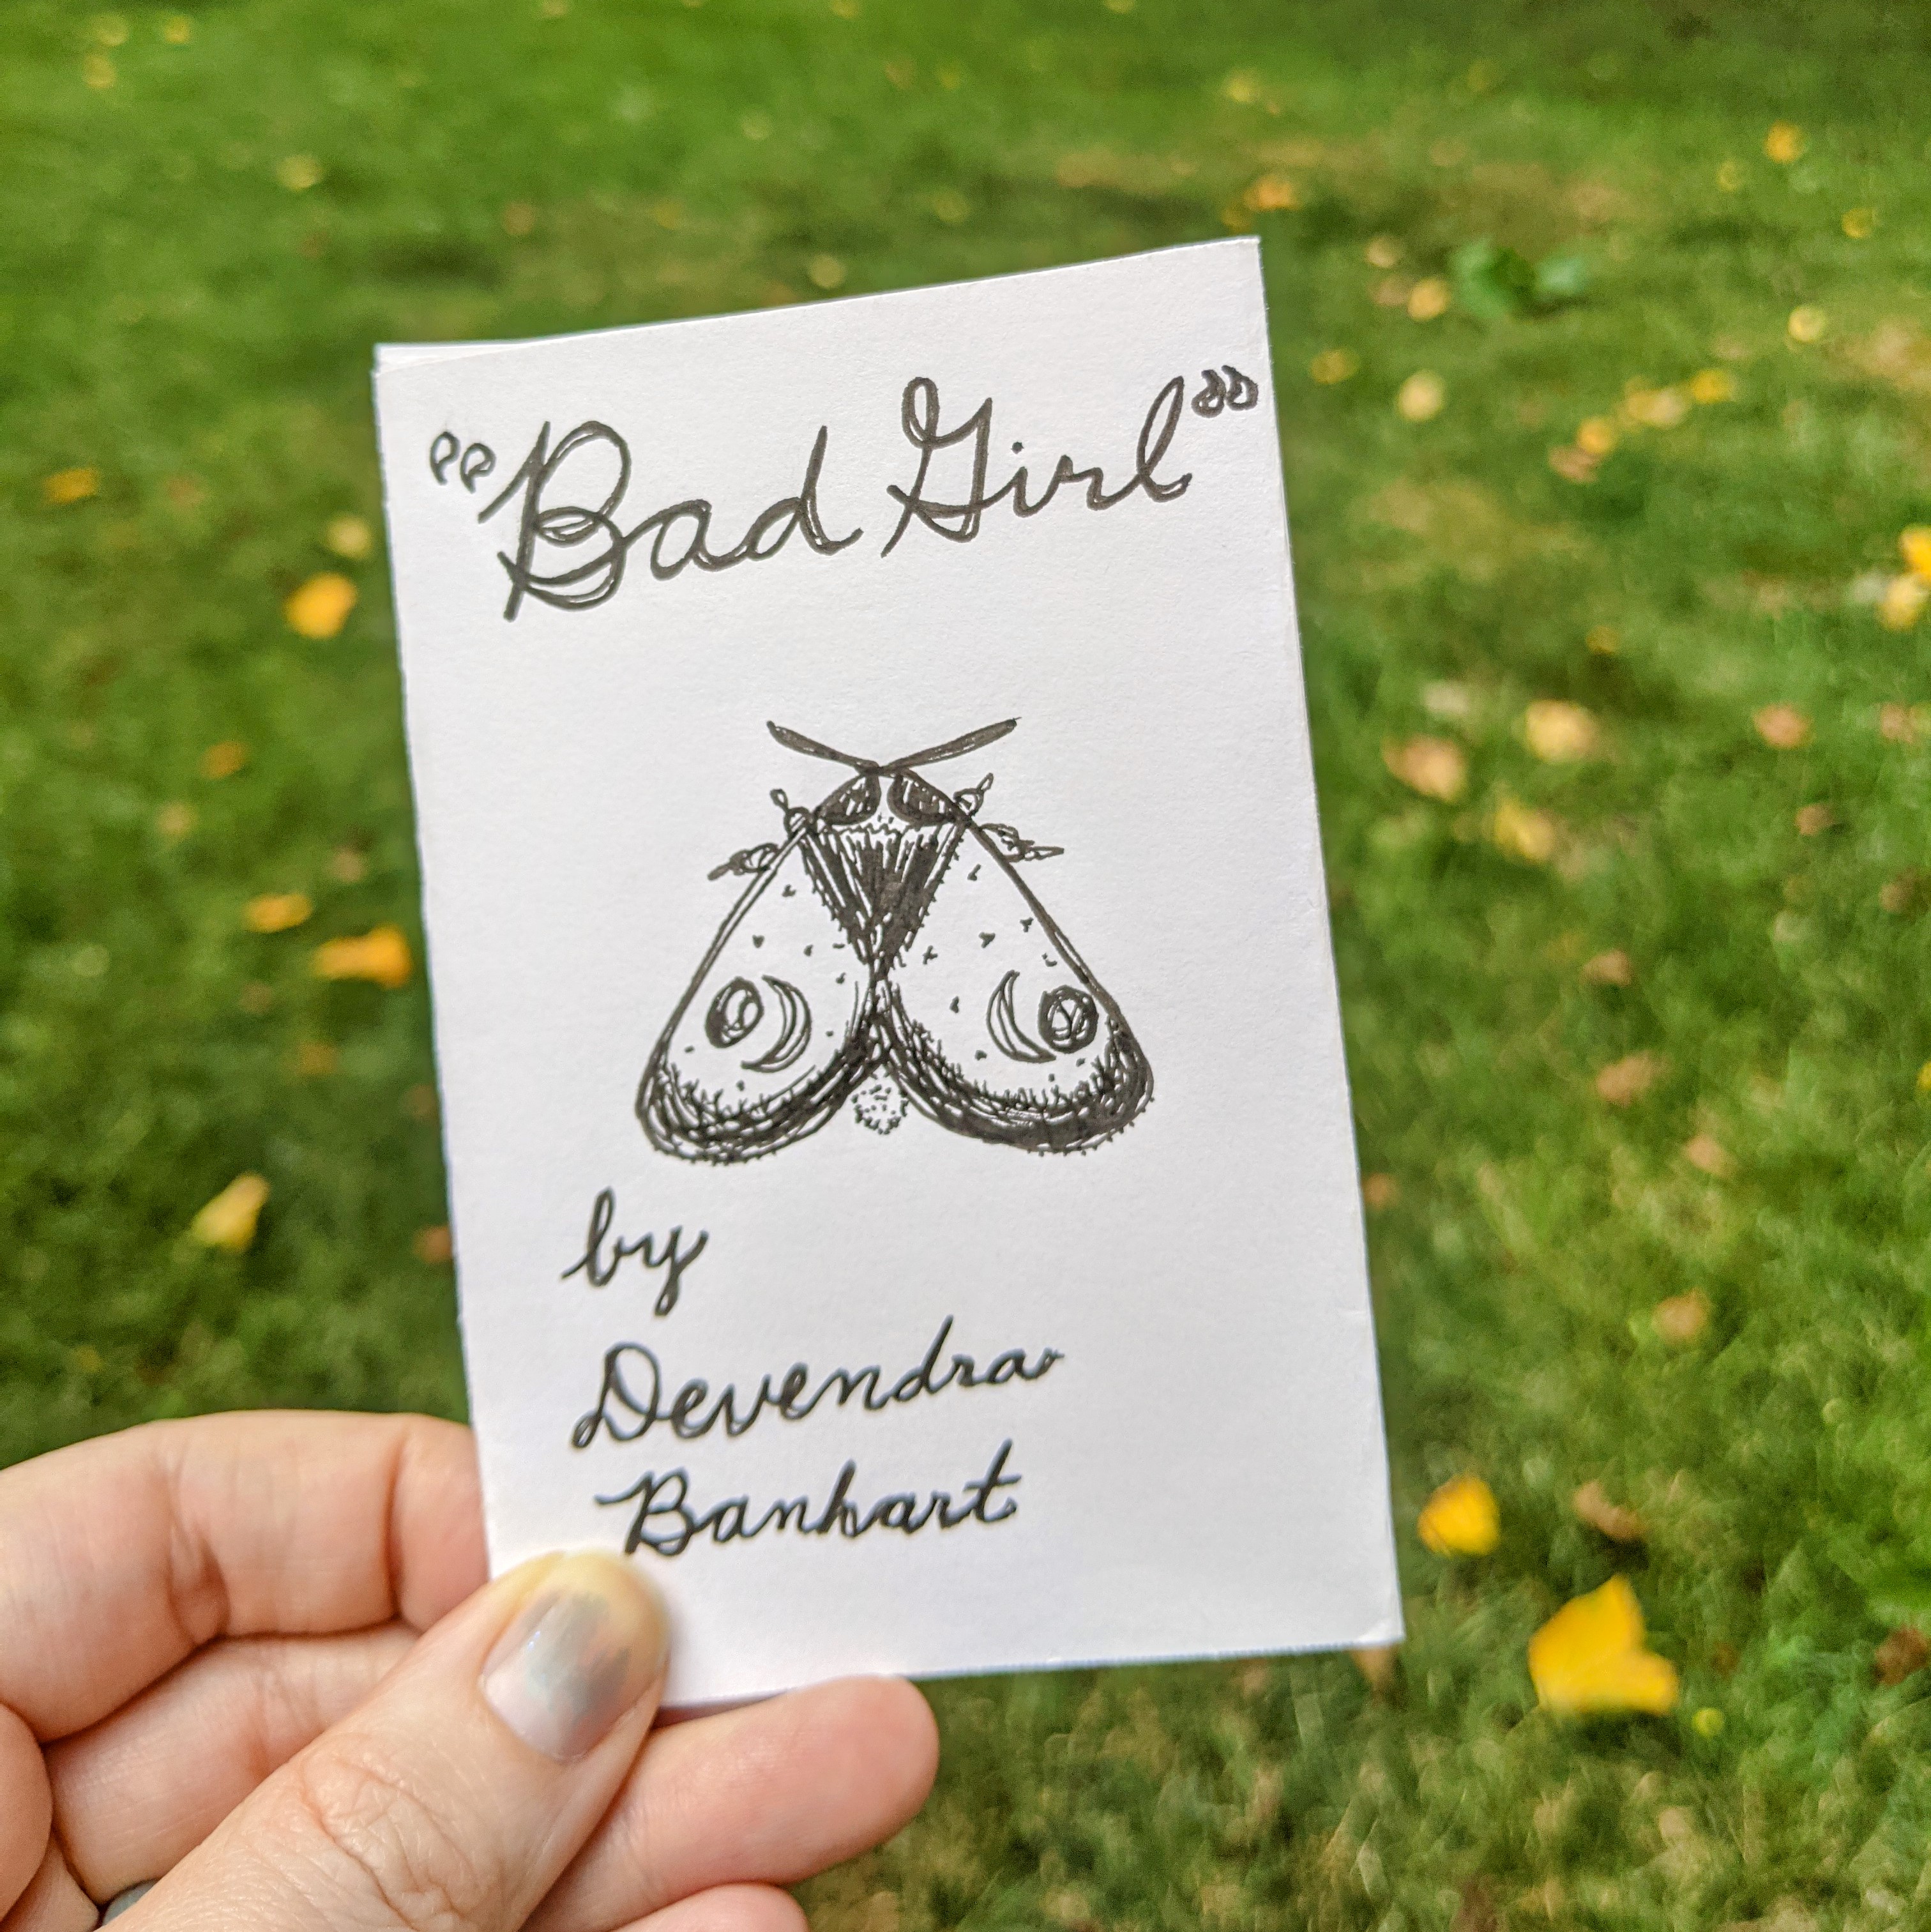 "Bad Girl"
by
Devendra
Banhart